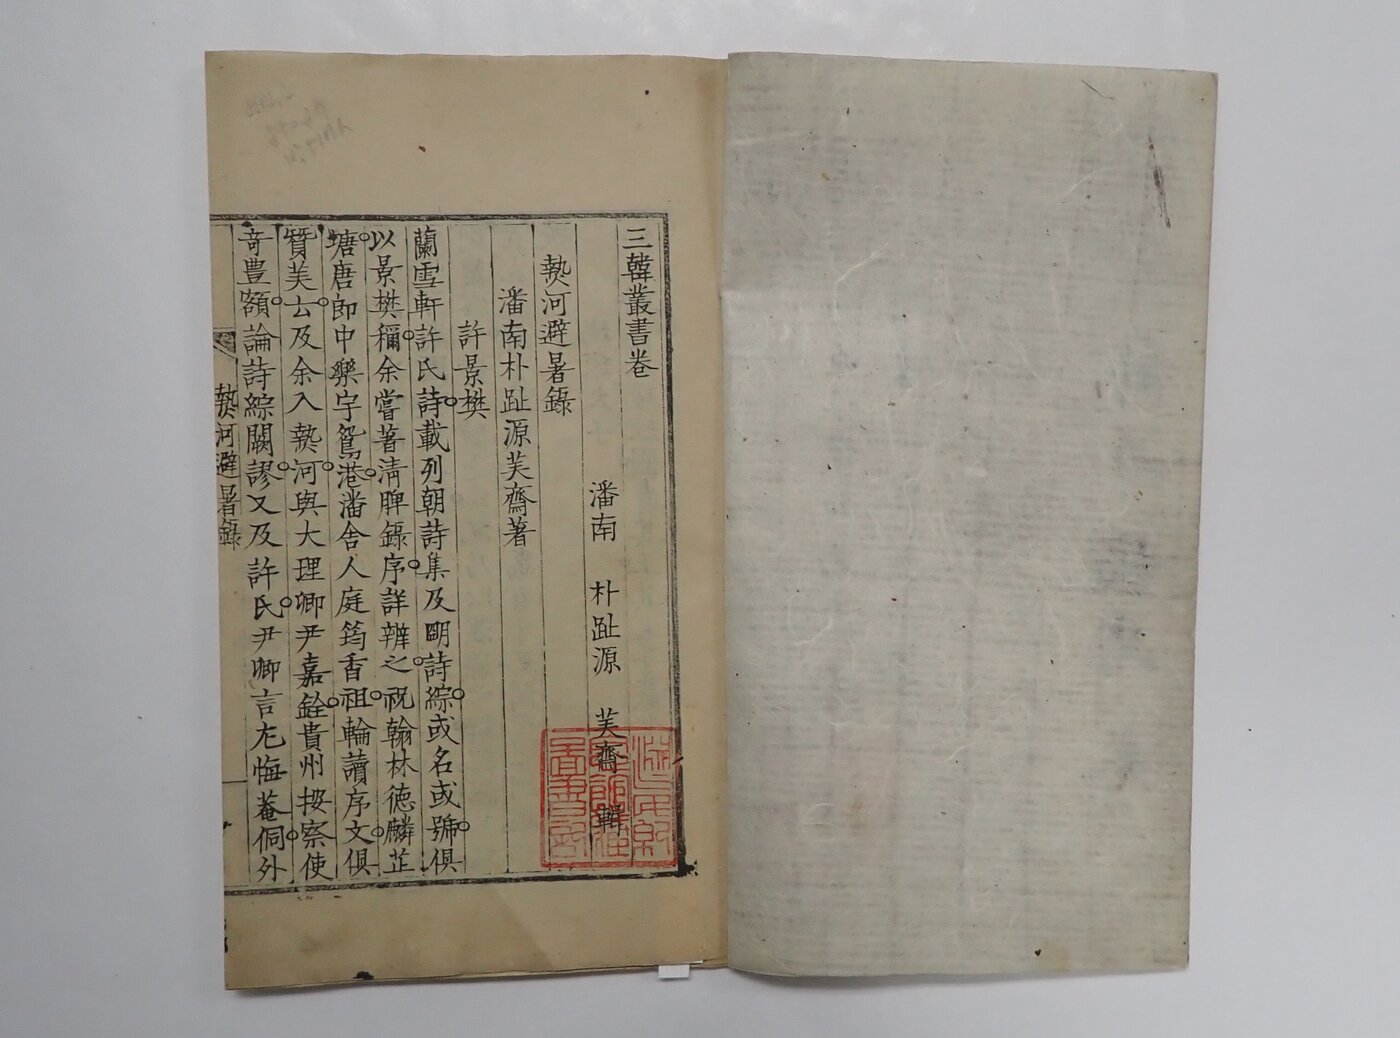 三韓叢書卷
潘南 朴趾源 美齋 輯
熱河避暑錄
潘南朴趾源美齋著
許景樊
蘭雪軒許氏詩載列朝詩集及明詩綜或名或號俱
以景樊稱余嘗著淸脾錄序詳辨之祝翰林德麟芷
塘唐郎中樂宇鴛港潘舍人庭筠香祖輪讀序文俱
贊美云及余入熱河與大理卿尹嘉銓貴州按察使
奇豐額論詩綜闕謬又及許氏尹卿言尤悔菴侗外
熱河避暑錄